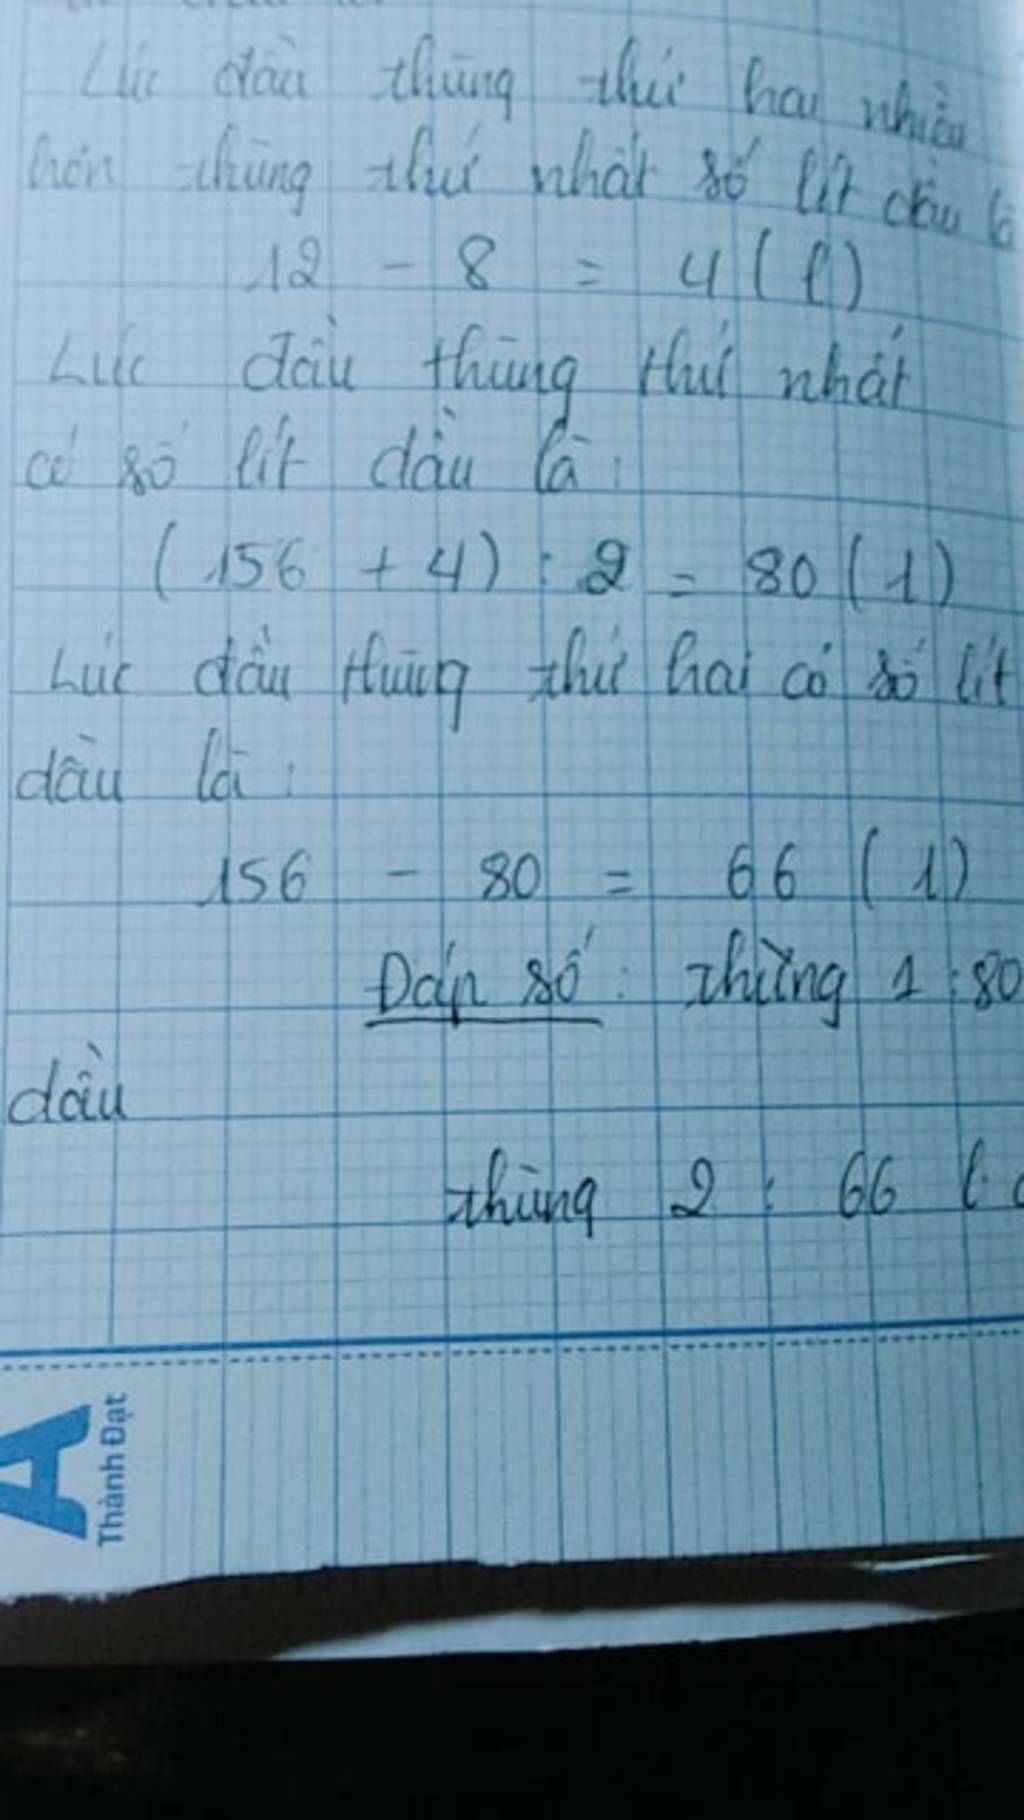 Lúc đầu thùng thứ hai nhiều
hơn thùng thứ nhất số lít dầu là
12 - 8 = 4 (l)
Lúc đầu thùng thứ nhất
có số lít dầu là:
(156 + 4) : 2 = 80 (l)
Lúc đầu thùng thứ hai có số lít
dầu là:
156 - 80 = 66 (l)
Đáp số: thùng 1: 80
dầu
thùng 2: 66 l
A
Thành Đạt